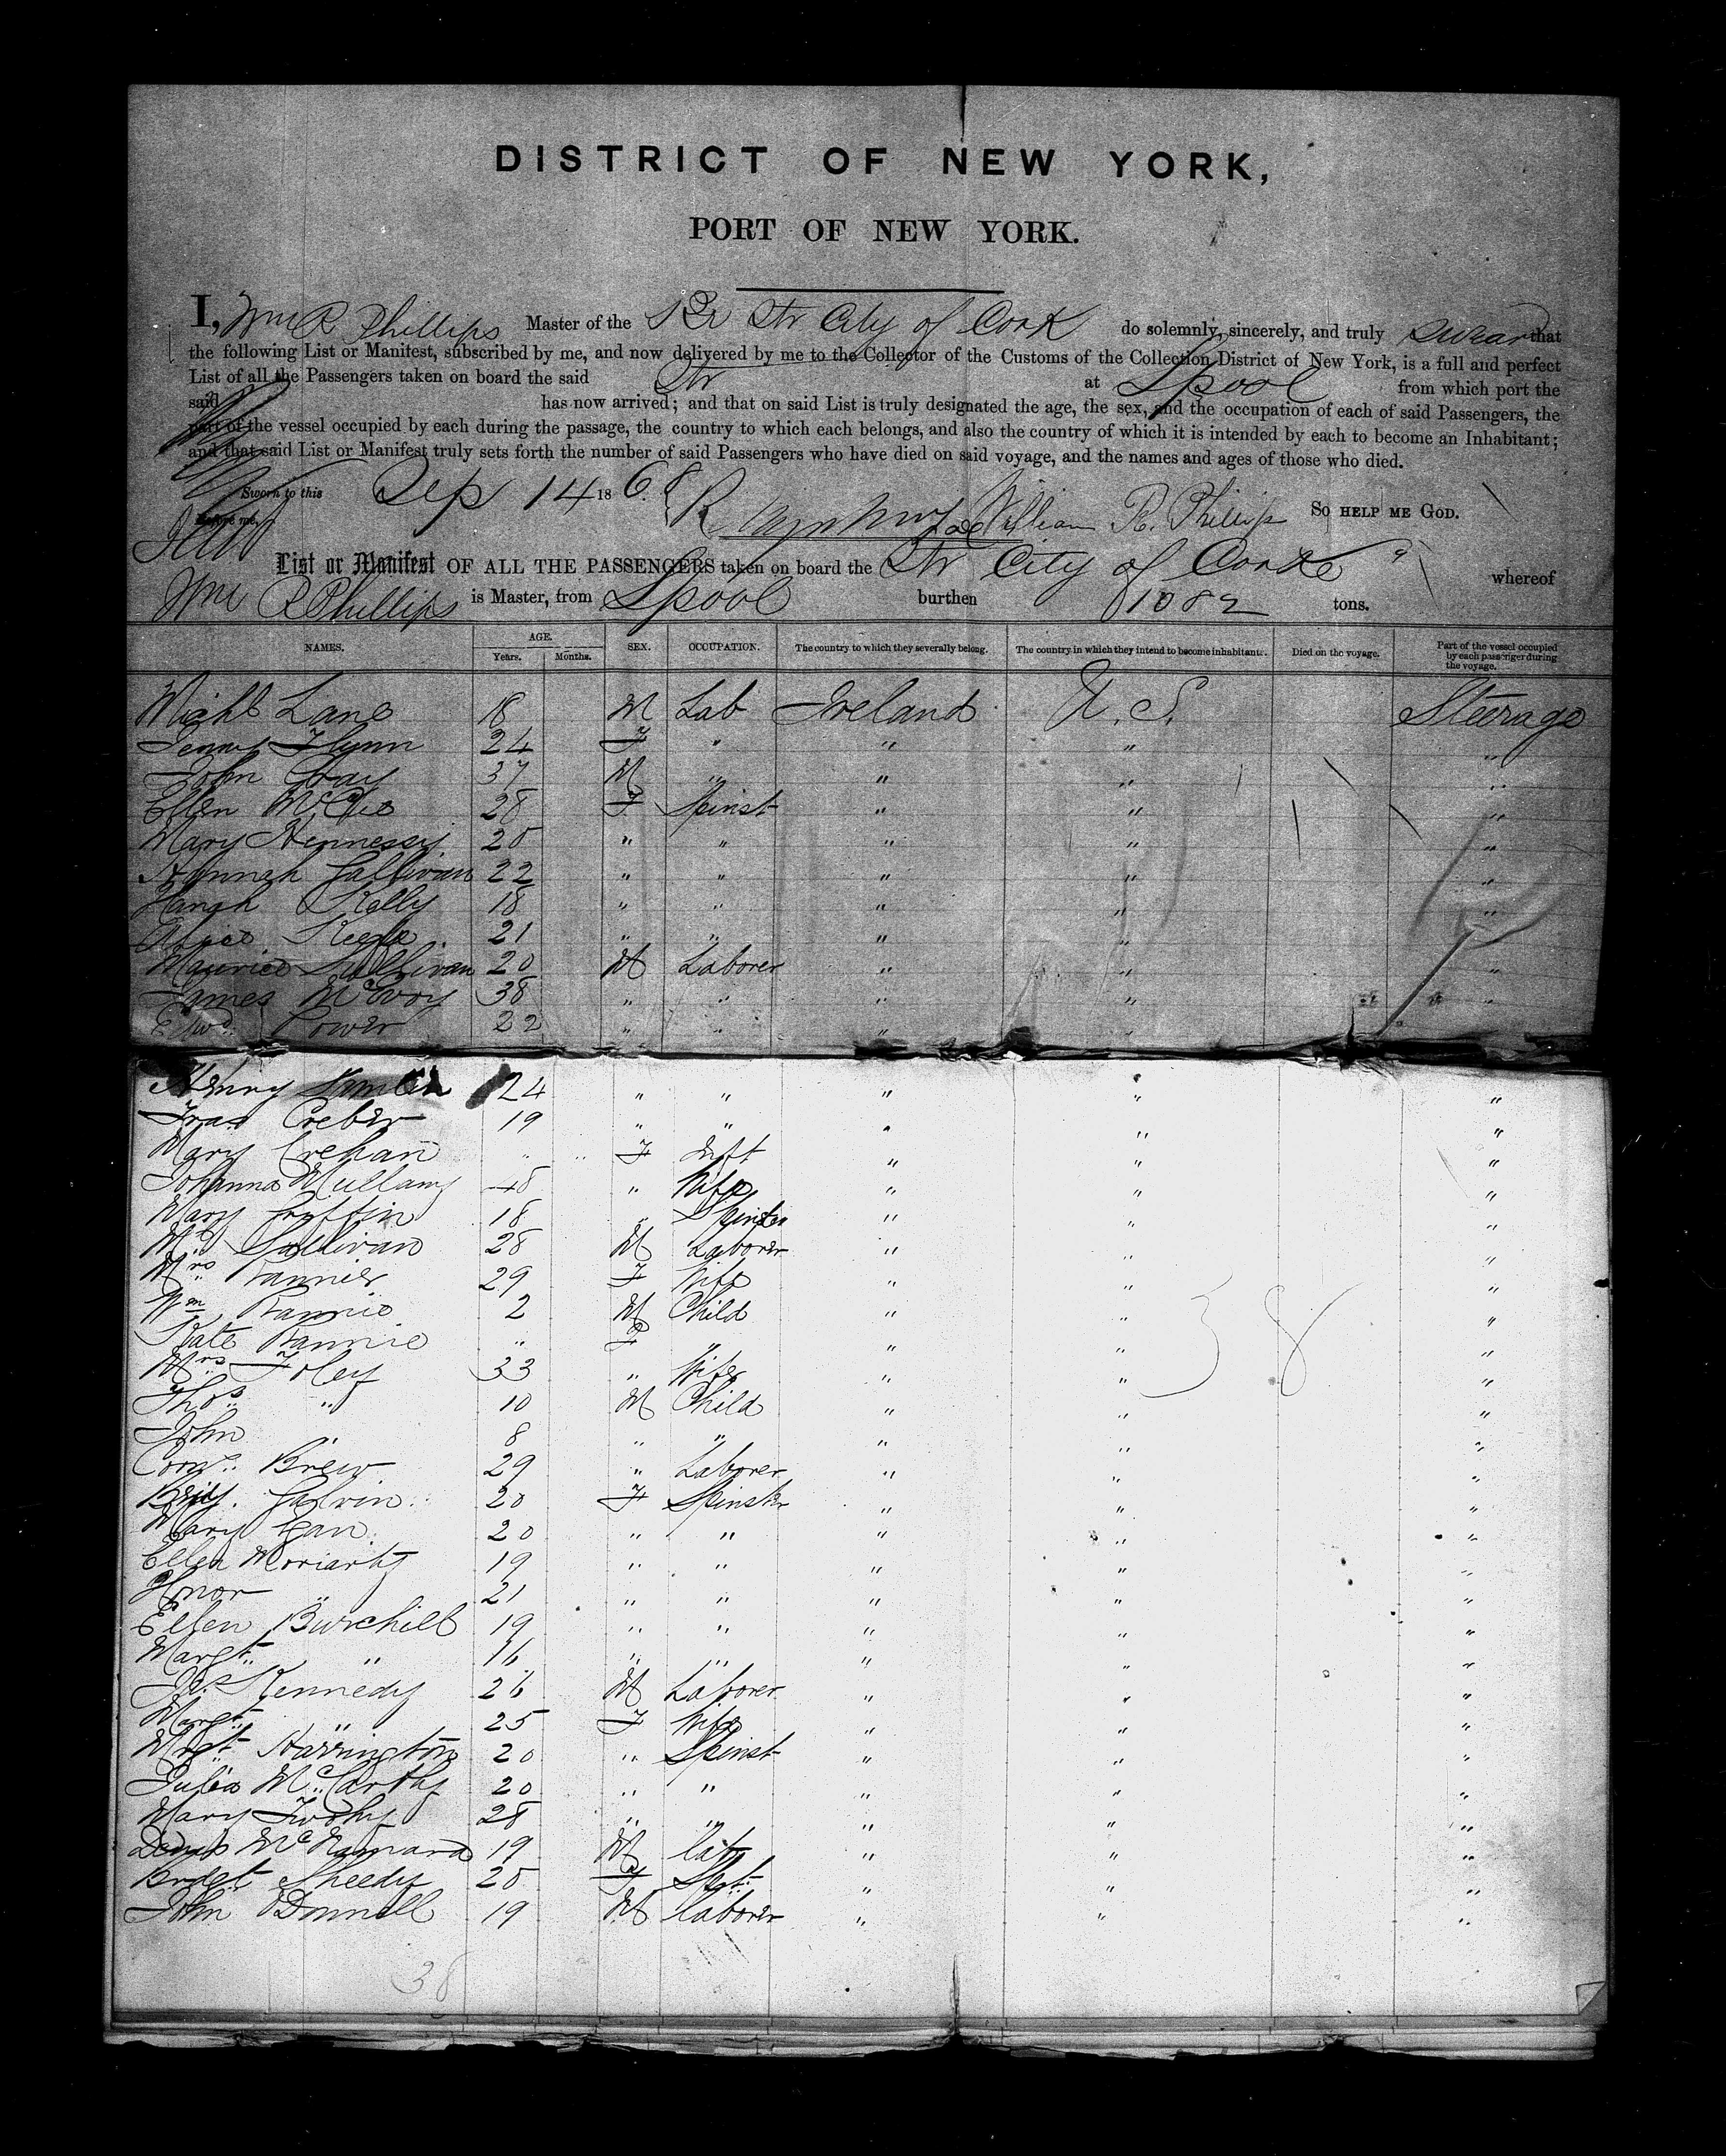 DISTRICT OF NEW YORK,
PORT OF NEW YORK.
I, Wm R Phillips Master of the Br Str City of Cork do solemnly, sincerely, and truly swear that
the following List or Manifest, subscribed by me, and now delivered by me to the Collector of the Customs of the Collection District of New York, is a full and perfect
List of all the Passengers taken on board the said Str at Lpool from which port the
said has now arrived; and that on said List is truly designated the age, the sex, and the occupation of each of said Passengers, the
part of the vessel occupied by each during the passage, the country to which each belongs, and also the country of which it is intended by each to become an Inhabitant;
and that said List or Manifest truly sets forth the number of said Passengers who have died on said voyage, and the names and ages of those who died.
Sworn to this Sep 14 1868
before me, William R. Phillips SO HELP ME GOD.
List or Manifest OF ALL THE PASSENGERS taken on board the Str City of Corke " whereof
Wm R Phillips is Master, from Lpool burthen 1082 tons.
NAMES. AGE. Years. Months. SEX. OCCUPATION. The country to which they severally belong. The country in which they intend to become inhabitants. Died on the voyage. Part of the vessel occupied by each passenger during the voyage.
Michl Lane 18 M Lab Ireland U.S. Steerage
Flynn 24 F " " " "
John Gray 37 M " " " "
Ellen McGee 28 F Spinst " " "
Mary Hennessy 20 " " " " "
Hannah Sullivan 22 " " " " "
Hanah Kelly 18 " " " " "
Alice Keefe 21 " " " " "
Maurice Sullivan 20 M Laborer " " "
James McEvoy 38 " " " " "
Edwd Power 22 " " "
Henry 24 " " " " "
Fras Creber 19 " " " " "
Mary Crehan " " F Inft " " "
Johanna Mullany 48 " Wife " " "
Mary Griffin 18 " Spinster " " "
Sullivan 28 M Laborer " " "
Mrs Rannie 29 F Wife " " "
Wm Rannie 2 M Child " " "
Kate Rannie " F " " "
Mrs Foley 33 " Wife " " "
Thos " 10 M Child " " "
John " 8 " " " " "
Corns Brew 29 " Laborer " " "
Bridy. Galvin 20 F Spinster " " "
Mary Egan 20 " " " " "
Ellen Moriarty 19 " " " " "
Honor " 21 " " " " "
Ellen Burchill 19 " " " " "
Margt " 16 " " " " "
Kennedy 26 M Laborer " " "
Margt " 25 F Wife " " "
Mrgt Harrington 20 " Spinst " " "
Julia McCarthy 20 " " " " "
Mary Twohy 28 " " " " "
Denis McNamara 19 M Lab " " "
Brdgt Sheedy 25 F Spt " " "
John ODonnell 19 M Laborer " " "
38
38